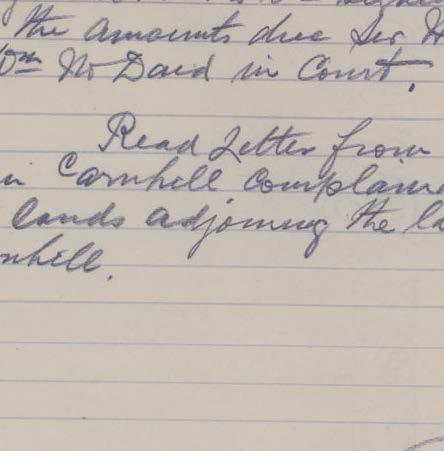 the amounts due Sir H
Wm McDaid in Court.
Read Letter from
n Carnhill complain
lands adjoining the la
nhill.